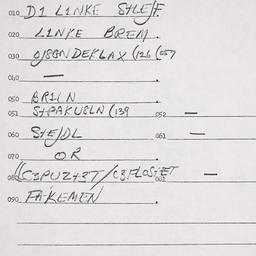 010 D1 L1NKE STLEJF.
020 L1NKE BREM.
030 0J8GNDEKLAX (126 (057
040 —
050 BR1LN
051 STPAKUSLN (139 052 —
060 STEJDL 061 —
070 OR
080 ((C3PUZT3T/C3FLOSTET 081 —
090 FA-KEMEN